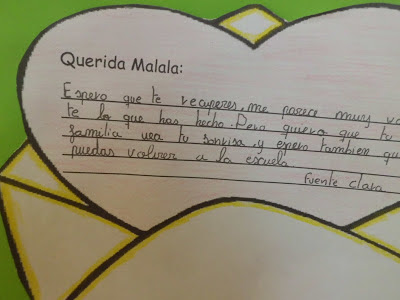 Querida Malala:
Espero que te recuperes. me parece muy va
te lo que has hecho. Pero quiero que tu
familia vea tu sonrisa y espero tambien que
puedas volver a la escuela
fuente clara